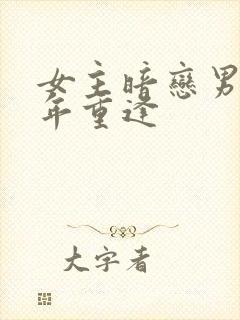 女主暗戀男
年重逢
大字者